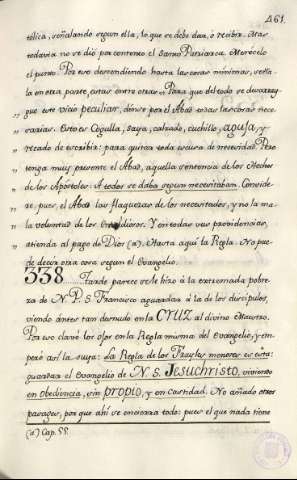 461.
tólica, señalando segun ella, lo que se debe dar, ó recibir. Mas
todavia no se dió por contento el Santo Patriarca. Moroselo
el punto. Por eso descendiendo hasta las cosas mínimas, seña-
la en otra parte, estas
Para que del todo se desarray-
„ gue este vicio peculiar, dense por el Abad todas las cosas nece-
„ sarias. Esto es Cogulla, Saya, calzado, cuchillo, aguja, y
„ recado de escribir: para quitar toda escusa de necesidad. Pero
„ tenga muy presente el Abad, aquella sentencia de los Hechos
„ de los Apóstoles: A todos se daba segun necesitaban. Conside-
„ re, pues, el Abad las flaquezas de los necesitados, y no la ma-
„ la voluntad de los Envidiosos. Y en todas sus providencias,
„ atienda al pago de Dios (a). Hasta aquí la Regla. No pue-
de decir otra cosa segun el Evangelio.
338. Tarde parece se le hizo á la extremada pobre-
za de N. P. S. Francisco aguardar á la de los discípulos,
viendo ántes tan desnudo en la CRUZ al divino Maestro.
Por eso clavó los ojos en la Regla misma del Evangelio, y em-
pezó así la suya: La Regla de los Frayles menores es esta:
guardar el Evangelio de N. S. Jesuchristo, viviendo
en Obediencia, sin propio, y en castidad. No añado otros
parages, por que ahí se encierra todo: pues el que nada tiene
(a) Cap. 55.